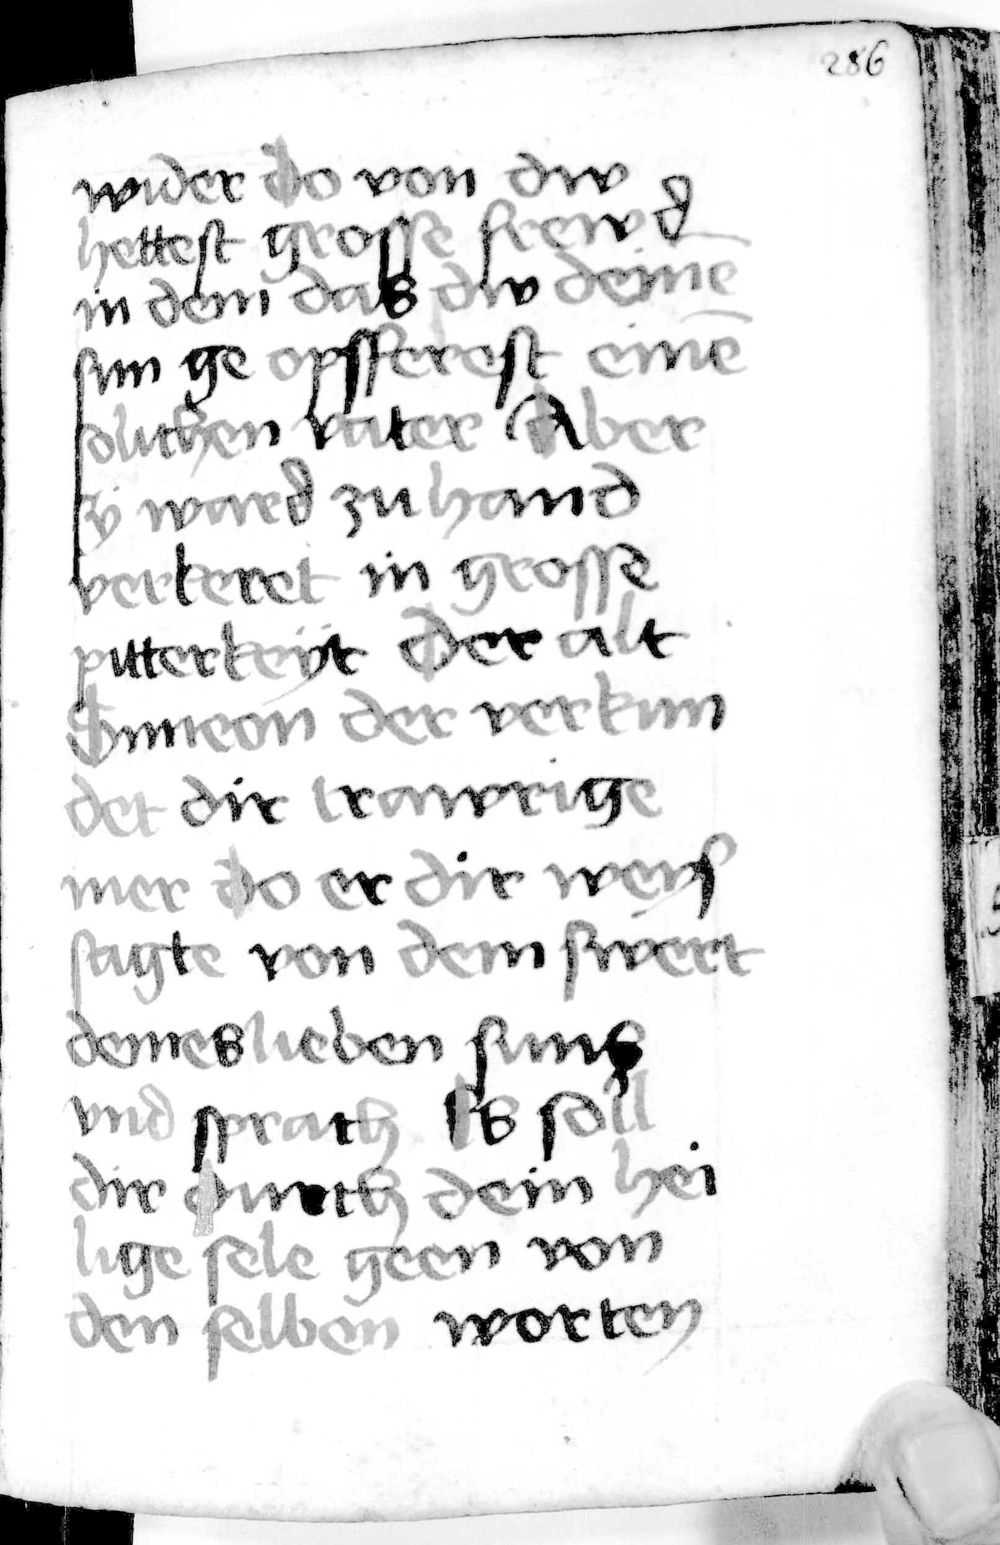 286
wider do von dw
hettest grosse frewd
in dem das dw deinē
sun ge opfferest einē
solichen vater Aber
sy ward zu hand
verkeret in grosse
pitterkeyt Der alt
Simeon der verkun
det dir trawrige
mer do er dir weys
sagte von dem swert
deines lieben suns
vnd sprach Es soll
dir durch dein hei
lige sele geen von
den selben worten